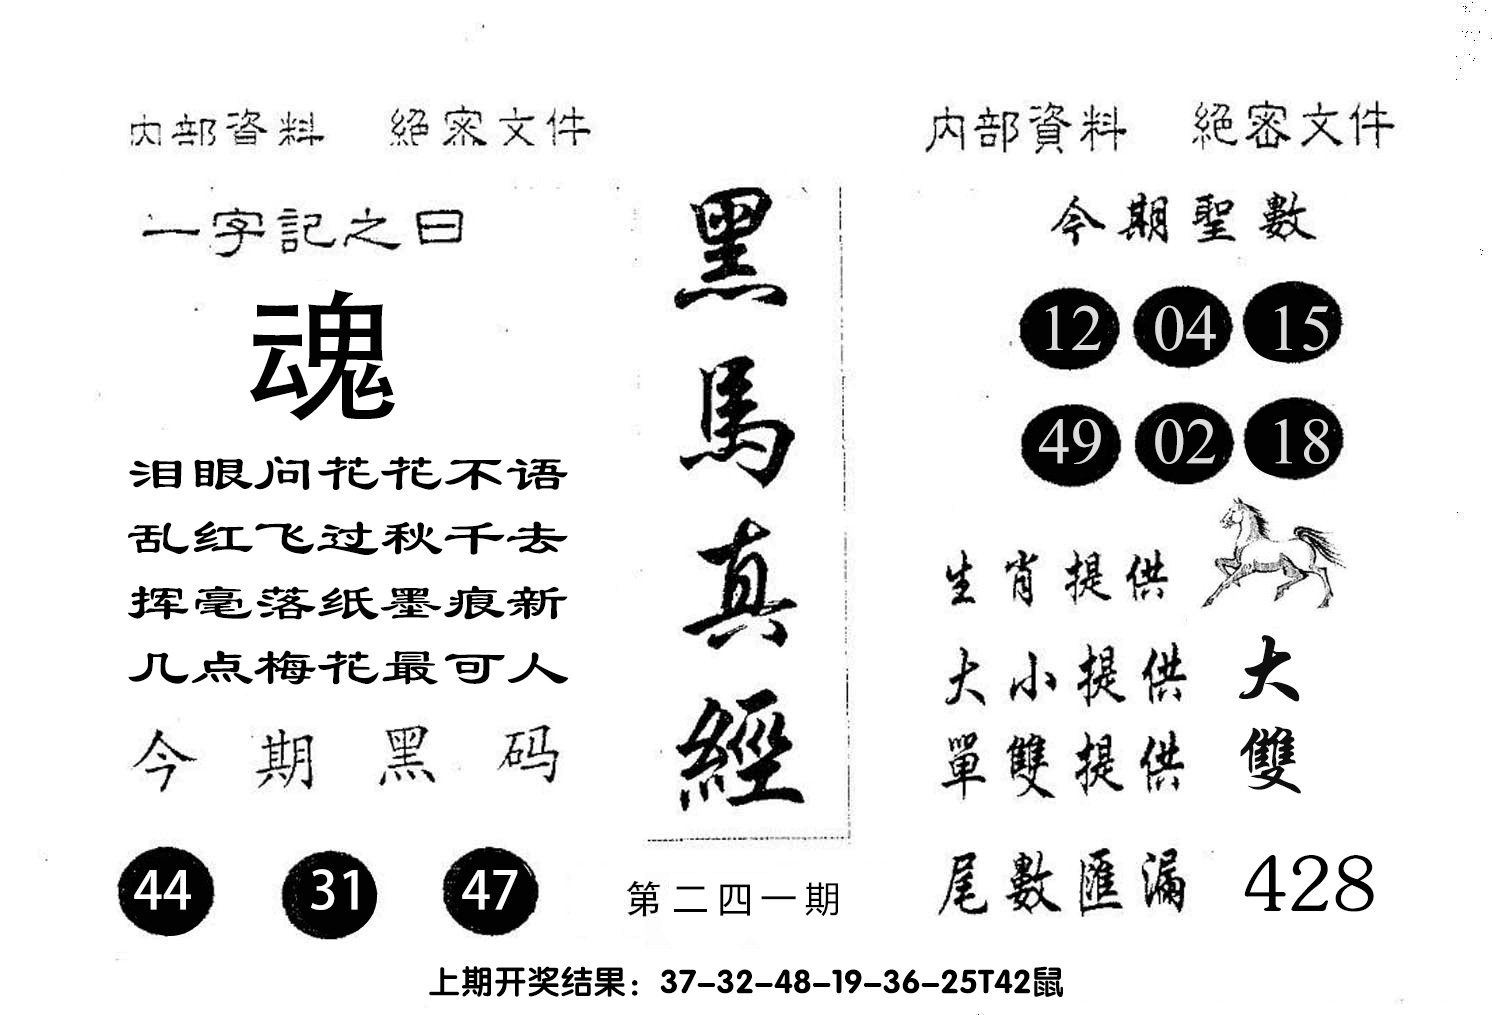 内部資料 絕密文件
一字記之曰
魂
泪眼问花花不语
乱红飞过秋千去
挥毫落纸墨痕新
几点梅花最可人
今期黑码
44 31 47
黑馬真經
第二四一期
内部資料 絕密文件
今期聖數
12 04 15
49 02 18
生肖提供
大小提供 大
單雙提供 雙
尾數匯漏 428
上期开奖结果：37-32-48-19-36-25T42鼠